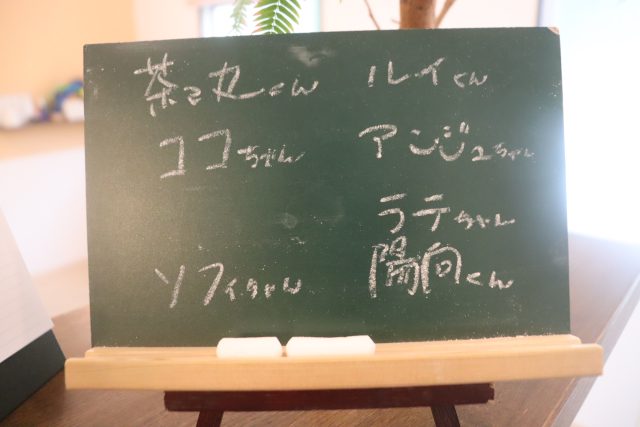 茶々丸くん ルイくん
ココちゃん アンジュちゃん
ラテちゃん
ソフィちゃん 陽向くん